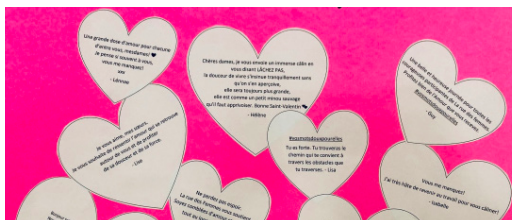 Une grande dose d'amour pour chacune
d'entre vous, mesdames! ❤
Je pense si souvent à vous,
vous me manquez!
xxx
- Léonie
Chères dames, je vous envoie un immense câlin en
vous disant LÂCHEZ PAS,
la douceur de vivre s'insinue tranquillement sans
qu'on s'en aperçoive,
elle sera toujours plus grande,
elle est comme un petit minou sauvage
qu'il faut apprivoiser. Bonne Saint-Valentin ❤
- Hélène
Une belle et heureuse journée pour toutes les
courageuses participantes de La rue des Femmes.
Profitez bien de l'amour que vous recevez.
- Guy
Je vous aime, mes sœurs,
Je vous souhaite de ressentir l'amour qui se retrouve
autour de vous et de profiter
de sa douceur et de sa force.
- Lise
Tu es forte. Tu trouveras le
chemin qui te convient à
travers les obstacles que
tu traverses. - Lise
Vous me manquez!
J'ai très hâte de revenir au travail pour vous câliner!
- Isabelle
Ne perdez pas espoir.
La rue des Femmes vous soutient
Soyez comblées d'amour